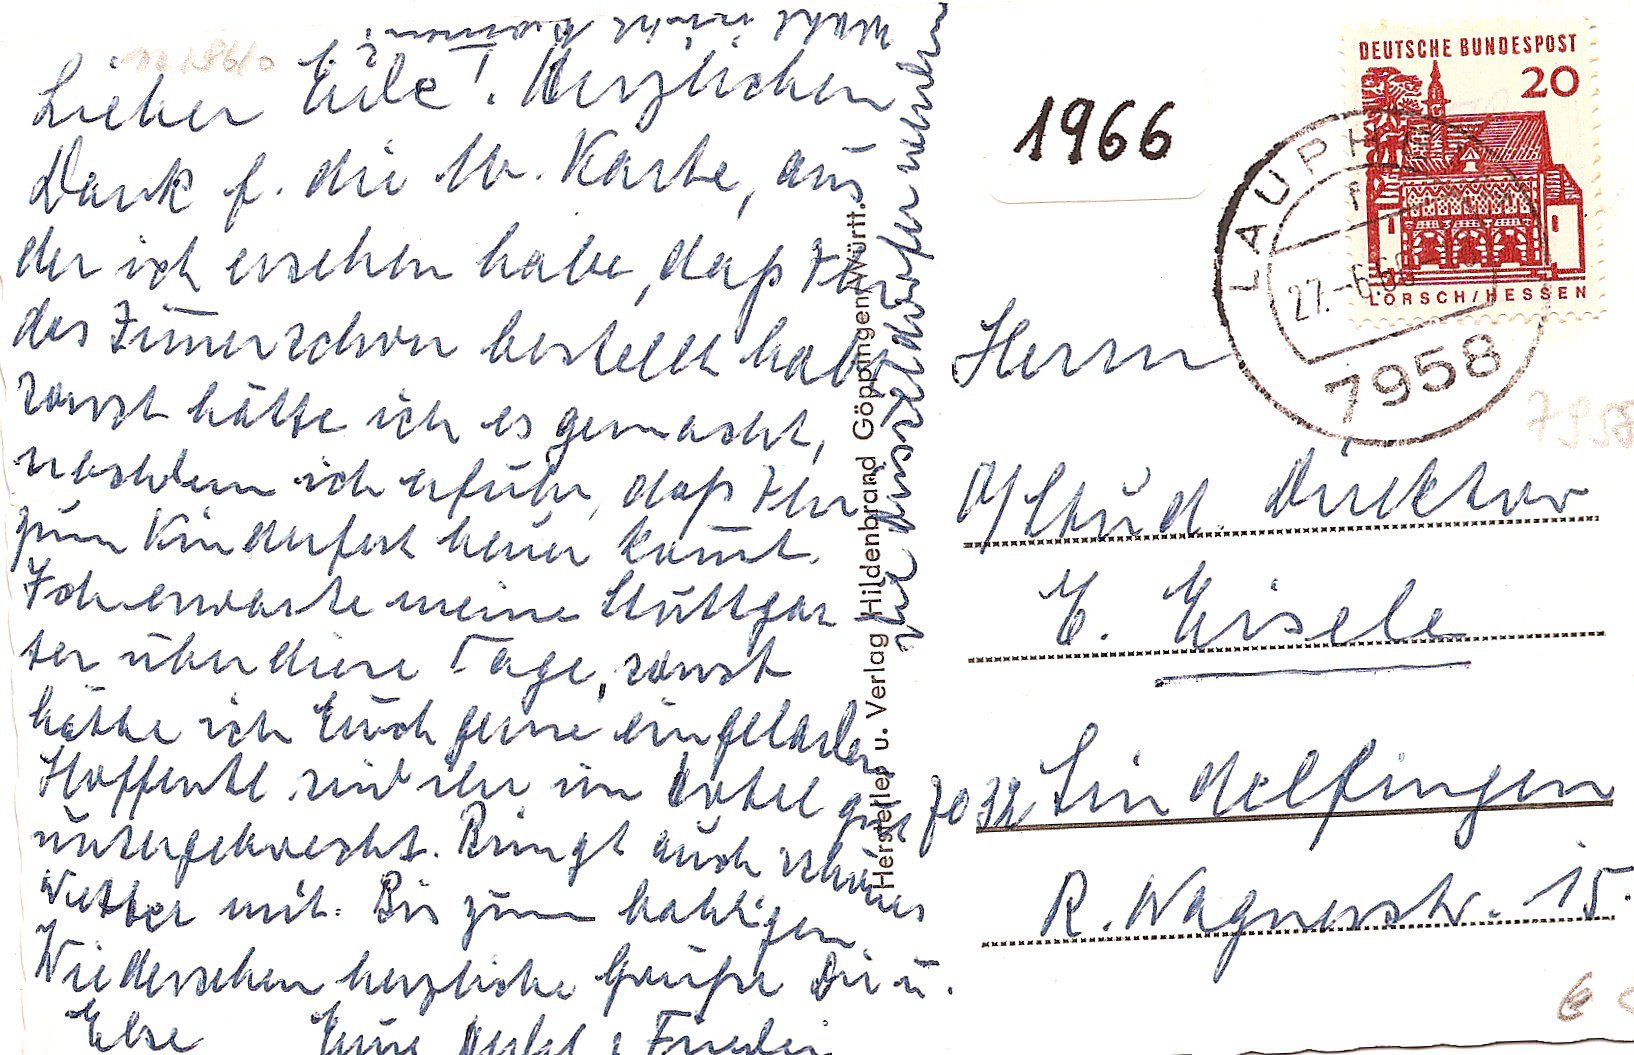 Lieber Eule! Herzlichen
Dank f. die lb. Karte, aus
der ich ersehen habe, daß Ihr
das Zimmer schon bestellt habt
sonst hätte ich es gemacht,
nachdem ich erfuhr, daß Ihr
zum Kinderfest heuer kommt.
Ich erwarte meine Stuttgar
ter über diese Tage, sonst
hätte ich Euch gerne eingeladen
Hoffentl. sind Ihr im Hotel gut
untergebracht. Bringt auch schönes
Wetter mit. Bis zum baldigen
Wiedersehen herzliche Grüße Dir u.
Else Eure Friedi
wohl nicht
Hersteller u. Verlag Hildenbrand Göppingen/Württ.
1966
DEUTSCHE BUNDESPOST
20
LORSCH/HESSEN
LAUPHEIM
27.-6.66
7958
7958
Herrn
O/Stud. Direktor
E. Eisele
7032 Sindelfingen
R. Wagnerstr. 15.